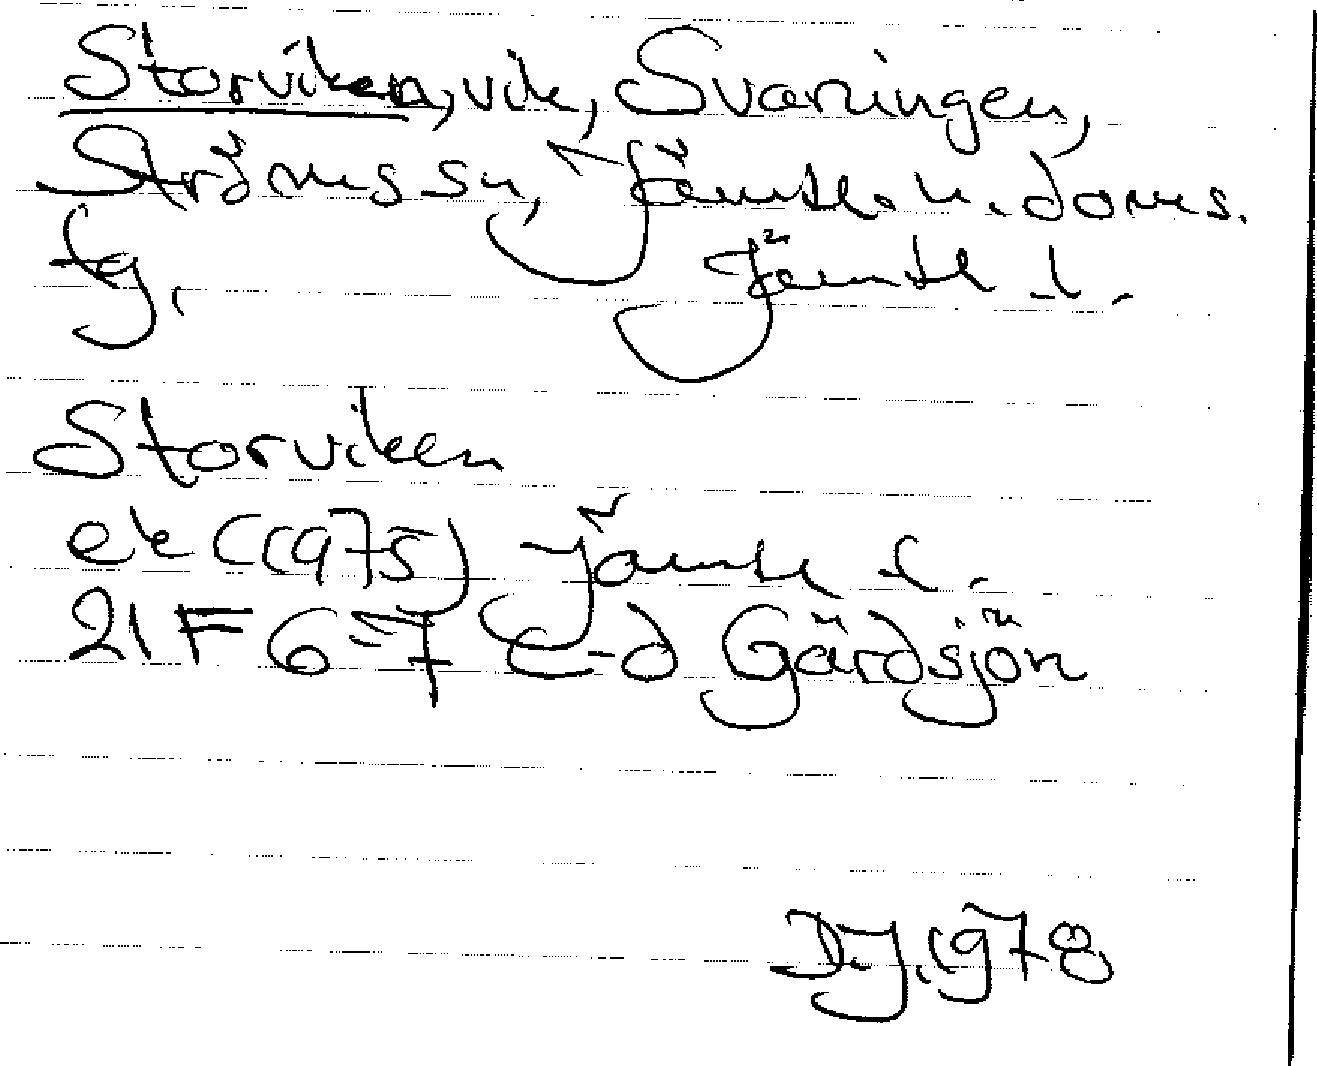 Storviken, vik, Svaningen,
Ströms sn, Jämtl. n. doms.
tg. Jämtl l.
Storviken
ek (1975) Jämtl l.
21 F 6-7 c-d Gärdsjön
DJ.1978